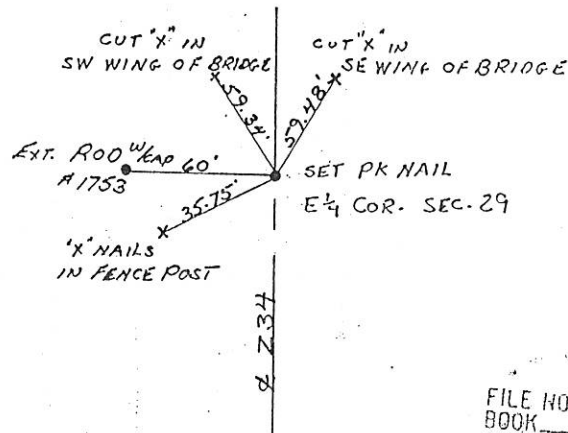 CUT "X" IN
SW WING OF BRIDGE
CUT "X" IN
SE WING OF BRIDGE
59.34'
59.48'
EXT. ROD W/CAP
#1753
60'
SET PK NAIL
E 1/4 COR. SEC. 29
35.75'
"X" NAILS
IN FENCE POST
234
FILE NO
BOOK